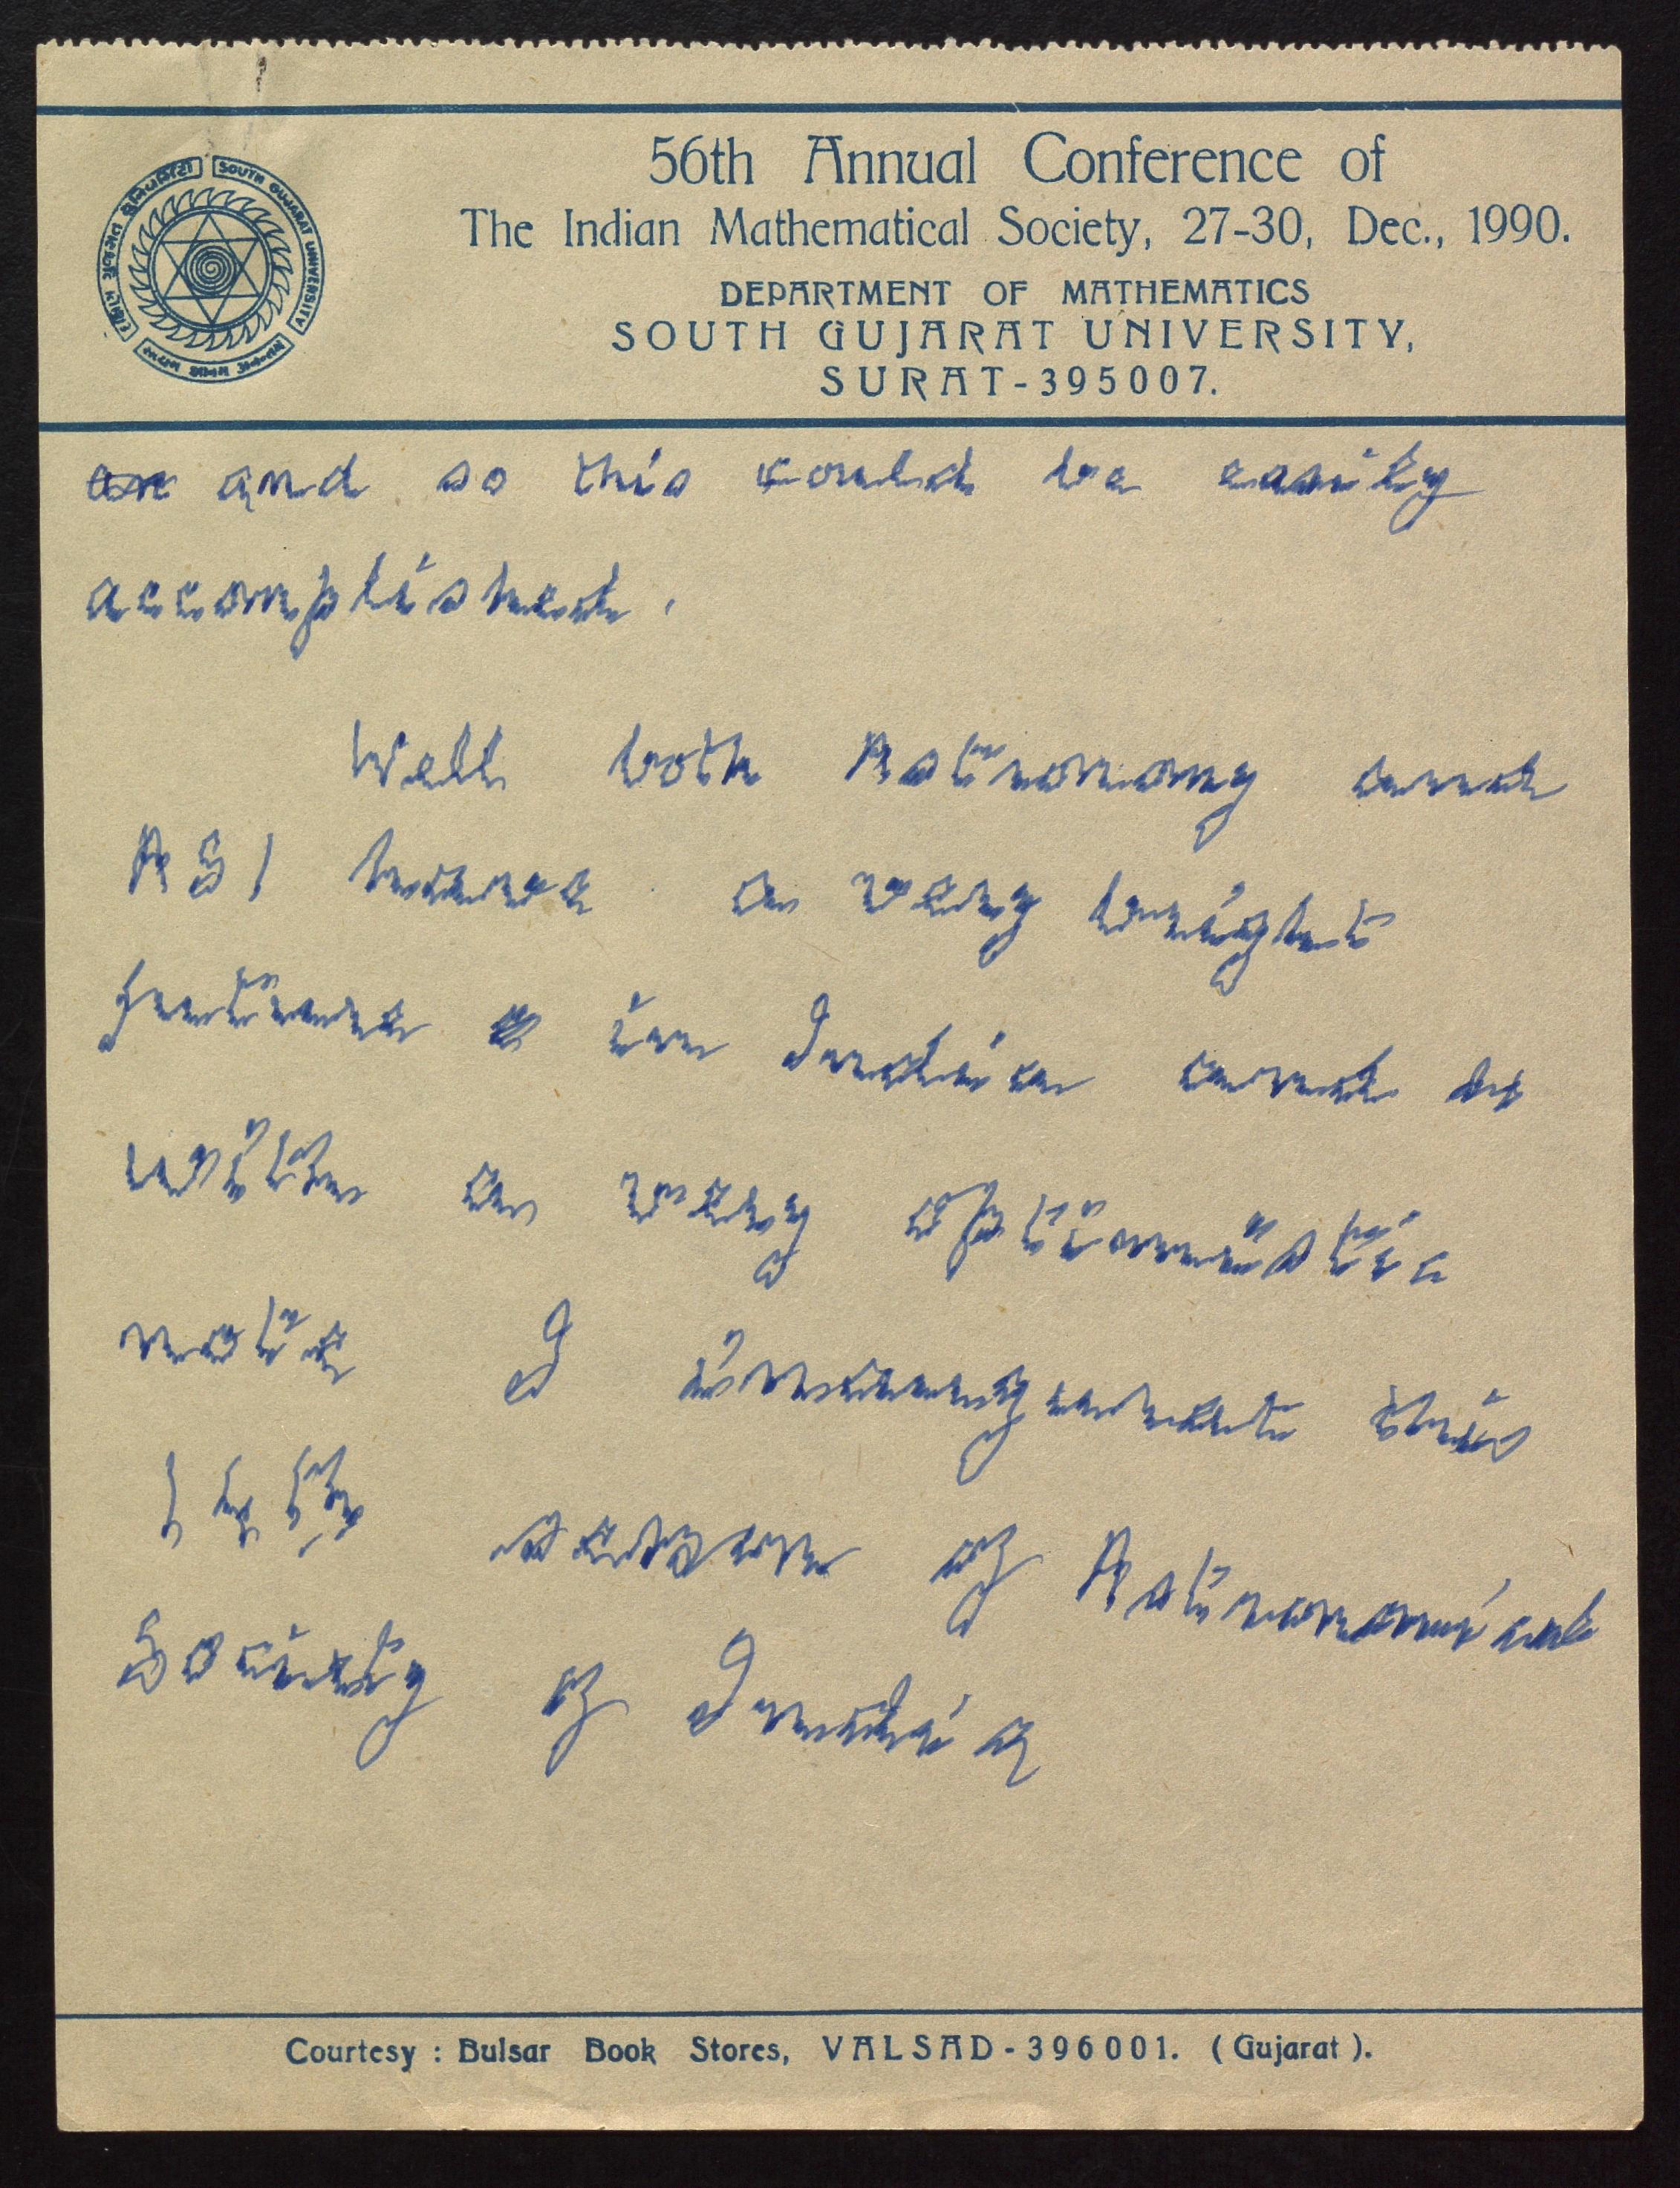 56th Annual Conference of
The Indian Mathematical Society, 27-30, Dec., 1990.
DEPARTMENT OF MATHEMATICS
SOUTH GUJARAT UNIVERSITY,
SURAT-395007.
SOUTH GUJARAT UNIVERSITY
and so this could be easily
accomplished.
Well both Astronomy and
ASI have a very bright
future in India and so
with a very optimistic
note I inaugurate this
session of Astronomical
Society of India
Courtesy : Bulsar Book Stores, VALSAD-396001. (Gujarat).